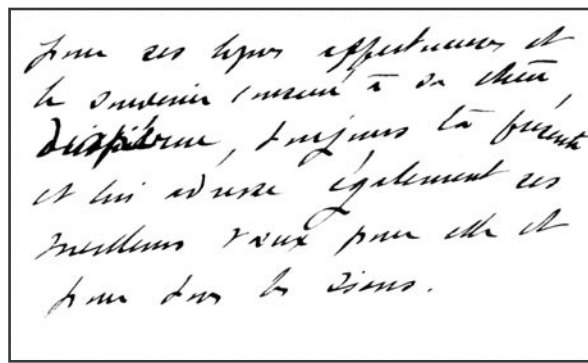 pour ses lignes affectueuses et
le souvenir conservé à sa chère
disparue, toujours là présente
et lui adresse également ses
meilleurs vœux pour elle et
pour tous les siens.